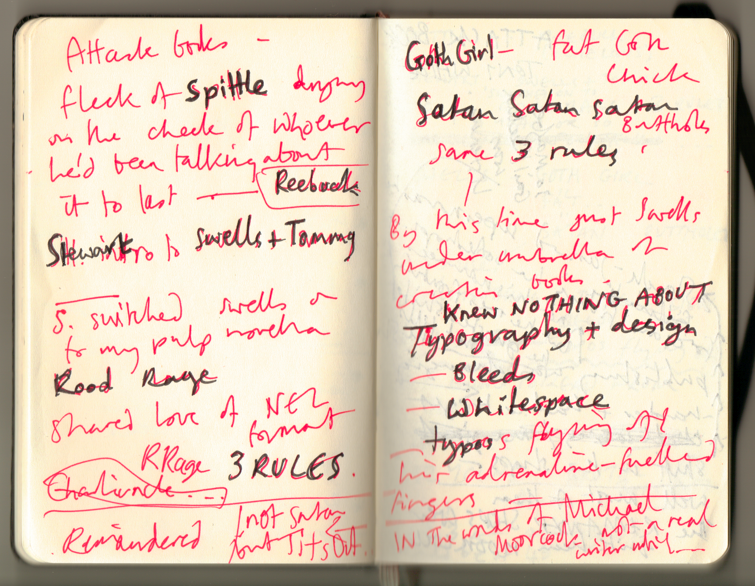 Attack books -
fleck of spittle drying
on the cheek of whoever
he'd been talking about
it to last
Reebok
Stewart intro to swells + Tommy
S. switched swells on
to my pulp novella
Road Rage
shared love of NEL
format
RRage 3 RULES.
Remaindered
not satan
but Tits Out.
Goth Girl - fat Goth
Chick
Satan Satan Satan
Buttholes
same 3 rules
By this time just Swells
under umbrella of
creation books.
Knew NOTHING ABOUT
Typography + design
- Bleeds
- Whitespace
- typos flying off
his adrenaline-fuelled
fingers
IN the words of Michael
Moorcock not a real
writer until